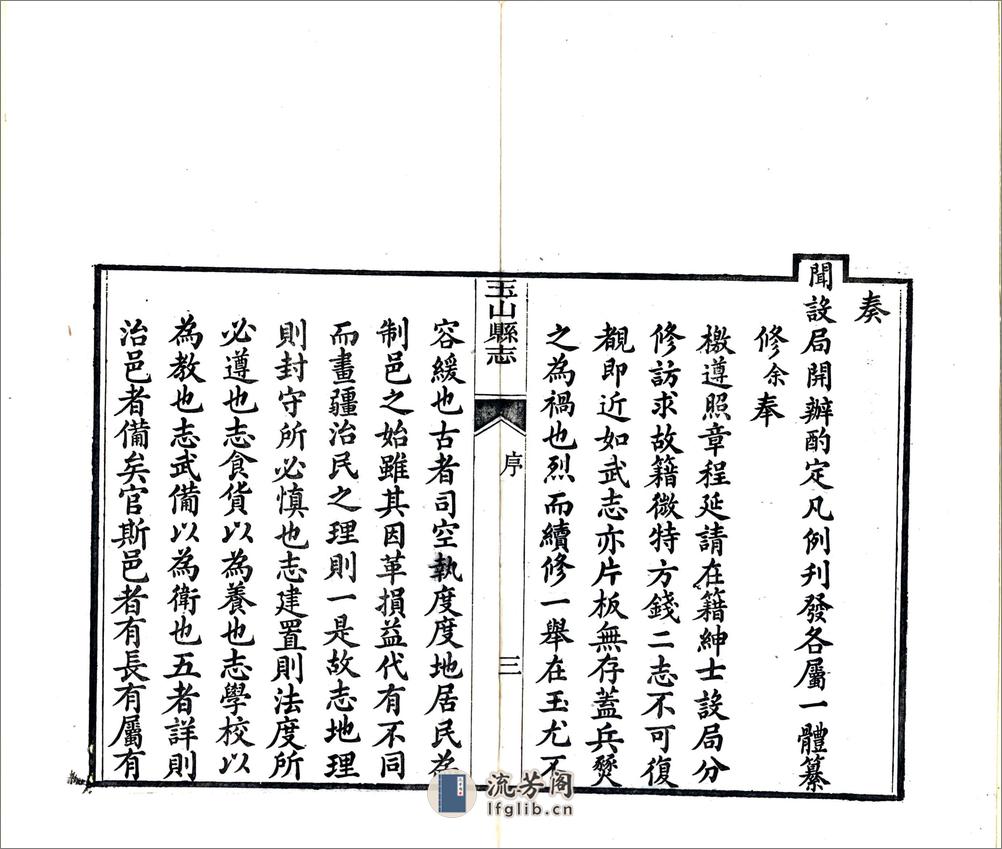 奏
聞設局開辦酌定凡例刊發各屬一體纂
修余奉
檄遵照章程延請在籍紳士設局分
修訪求故籍微特方錢二志不可復
覩即近如武志亦片板無存蓋兵燹
之為禍也烈而續修一舉在玉尤不
玉山縣志
序
三
容緩也古者司空執度度地居民為
制邑之始雖其因革損益代有不同
而畫疆治民之理則一是故志地理
則封守所必慎也志建置則法度所
必遵也志食貨以為養也志學校以
為教也志武備以為衛也五者詳則
治邑者備矣官斯邑者有長有屬有
流芳阁
lfglib.cn